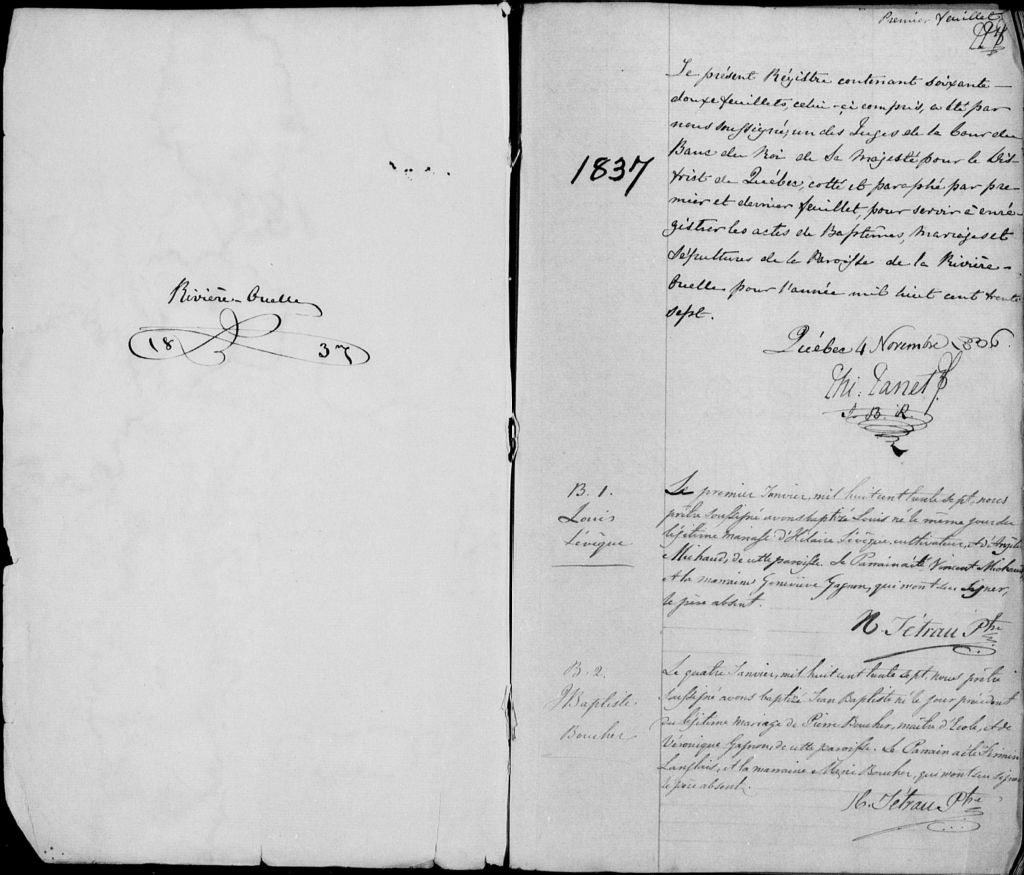 Rivière-Ouelle
18 37
Premier feuillet
1837
Le présent Régistre contenant soixante-
douze feuillets, celui-ci compris, a été par
nous soussigné, un des Juges de la Cour du
Banc du Roi de Sa Majesté pour le Dis-
trict de Québec, cotté et paraphé par pre-
mier et dernier feuillet, pour servir à enré-
gistrer les actes de Baptêmes, Mariages et
Sépultures de la Paroisse de la Rivière-
Ouelle pour l'année mil huit cent trente
sept.
Québec 4 Novembre 1836.
J. B. R.
B. 1.
Louis
Lévêque
Le premier Janvier, mil huit cent trente sept, nous
prêtre soussigné avons baptizé Louis né le même jour du
légitime mariage d'Hilaire Lévêque, cultivateur, et d'Angèle
Michaud, de cette paroisse. Le Parrain a été Vincent Michaud
et la marraine Geneviève Gagnon, qui n'ont su signer,
le père absent.
N. Tétrau Ptre
B. 2.
J Baptiste
Boucher
Le quatre Janvier, mil huit cent trente sept, nous prêtre
soussigné avons baptizé Jean Baptiste né le jour précédent
du légitime mariage de Pierre Boucher, maître d'Ecole, et de
Véronique Gagnon, de cette paroisse. Le Parrain a été Firmin
Langlais, et la marraine Marie Boucher, qui n'ont su signer
le père absent.
N. Tétrau Ptre